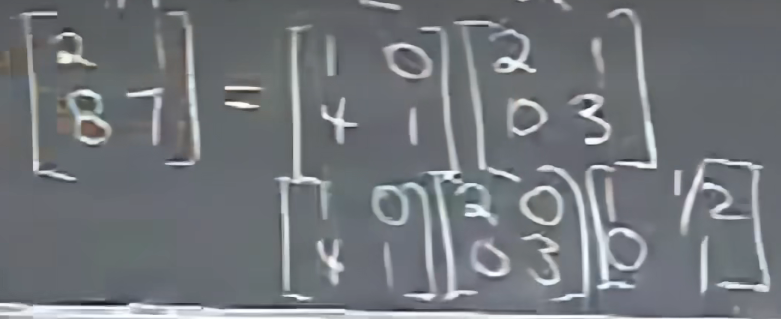 [2 1
8 7] = [1 0
4 1] [2 1
0 3]
[1 0
4 1] [2 0
0 3] [1 1/2
0 1]